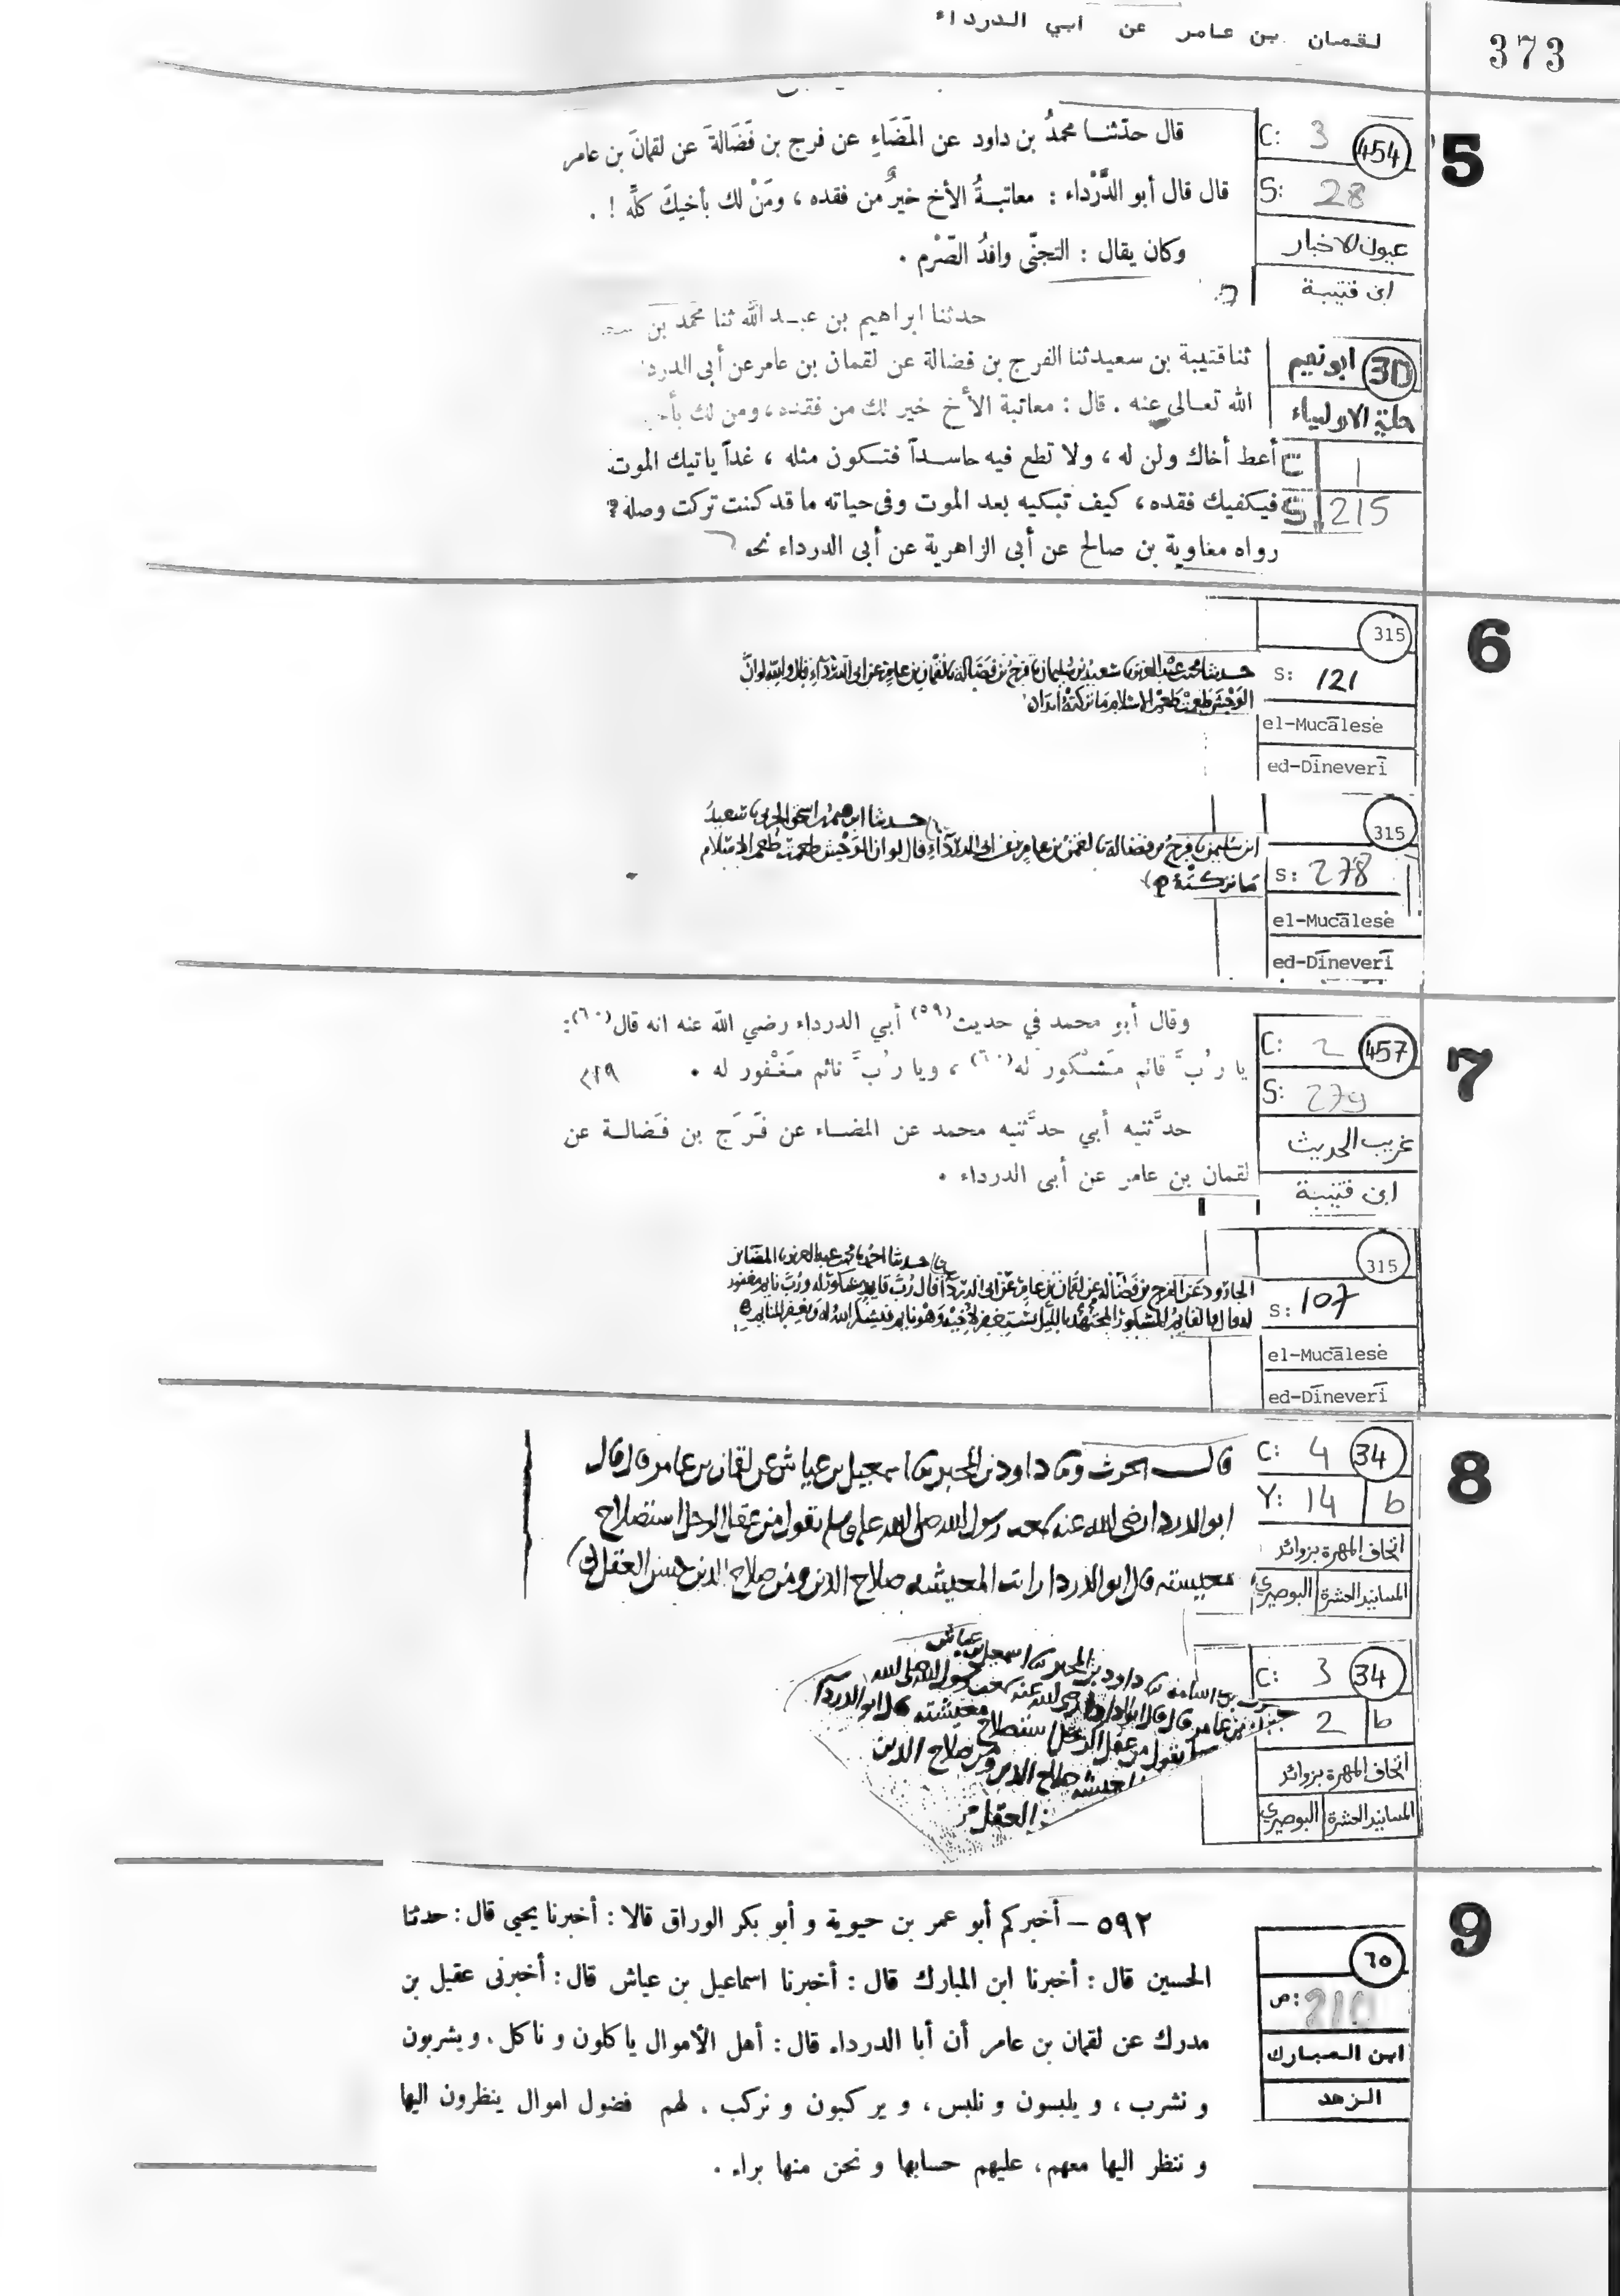 لقمان بن عامر عن ابي الدرداء
373
5
C: 3
454
S: 28
عيون الاخبار
ابن قتيبة
قال حدّثنا محمدُ بن داود عن المَضَاءِ عن فرج بن فَضَالةَ عن لقمانَ بن عامر
قال قال أبو الدَّرْداء : معاتبةُ الأخ خيرٌ من فقده ، ومَنْ لك بأخيكَ كلِّه ! .
وكان يقال : التجنّى وافدُ الصّرْم .
30
ابو نعيم
حلية الاولياء
C 1
S 215
حدثنا ابراهيم بن عبد الله ثنا محمد بن
ثنا قتيبة بن سعيد ثنا الفرج بن فضالة عن لقمان بن عامر عن أبى الدرد
الله تعالى عنه . قال : معاتبة الأخ خير لك من فقده ، ومن لك بأخ
أعط أخاك ولن له ، ولا تطع فيه حاسداً فتكون مثله ، غداً ياتيك الموت
فيكفيك فقده ، كيف تبكيه بعد الموت وفى حياته ما قد كنت تركت وصله ؟
رواه معاوية بن صالح عن أبى الزاهرية عن أبى الدرداء نحو
6
315
S: 121
el-Mucālese
ed-Dīneverī
حدثنا محمد بن عبد العزيز نا سعيد بن سليمان نا فرج بن فضالة نا لقمان بن عامر عن ابي الدرداء قال والله لو انّ
الوحش طعمت طعم الاسلام ما تركته ابدا
315
S: 278
el-Mucālese
ed-Dīneverī
حدثنا ابرهيم بن اسحق الحربي نا سعيد
ابن سليمن نا فرج بن فضالة نا لقمن بن عامر عن ابي الدرداء قال لو ان الوحش طعمت طعم الاسلام
ما تركته
7
C: 2
457
S: 279
غريب الحديث
ابن قتيبة
وقال أبو محمد في حديث(٥٩) أبي الدرداء رضي الله عنه انه قال(٦٠):
يا رُبَّ قائم مَشْكور له(٦٠) ، ويا رُبَّ نائم مَغْفور له .
٢٢٩
حدَّثنيه أبي حدَّثنيه محمد عن المضاء عن فَرَج بن فَضالة عن
لقمان بن عامر عن أبى الدرداء .
315
S: 107
el-Mucālese
ed-Dīneverī
حدثنا احمد نا محمد بن عبد العزيز نا المضا بن
الجارود عن الفرج بن فضالة عن لقمان بن عامر عن ابي الدرداء قال رب قايم مشكور له ورب نايم مغفور
8
C: 4
34
Y: 14 b
اتحاف المهرة بزوائد
المسانيد العشرة
البوصيري
قال الحرث ونا داود بن المحبر نا اسمعيل بن عياش عن لقمان بن عامر قال قال
ابو الدردا رضى الله عنه سمعت رسول الله صلى الله عليه وسلم يقول من عقل الرجل استصلاح
معيشته قال ابو الدردا رات المعيشه صلاح الدين ومن صلاح الدين حسن العقل
C: 3
34
2 b
اتحاف المهرة بزوائد
المسانيد العشرة
البوصيري
9
٦٥
ص: 210
ابن المبارك
الزهد
٥٩٢ – أخبركم أبو عمر بن حيوية و أبو بكر الوراق قالا : أخبرنا يحيى قال : حدثنا
الحسين قال : أخبرنا ابن المبارك قال : أخبرنا اسماعيل بن عياش قال : أخبرنى عقيل بن
مدرك عن لقمان بن عامر أن أبا الدرداء قال : أهل الأموال ياكلون و ناكل ، و يشربون
و نشرب ، و يلبسون و نلبس ، و يركبون و نركب . لهم فضول اموال ينظرون اليها
و ننظر اليها معهم ، عليهم حسابها و نحن منها براء .